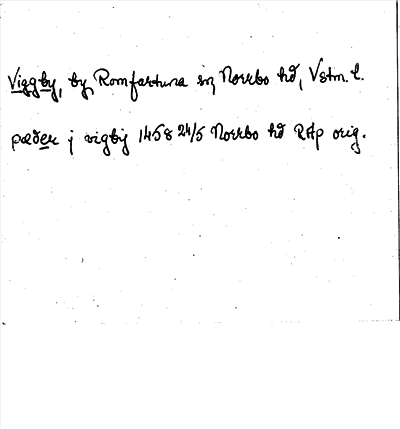 Viggby, by, Romfartuna sn, Norrbo hd, Vstm. l.
pæder j vigby 1458 24/5 Norrbo hd RAp orig.